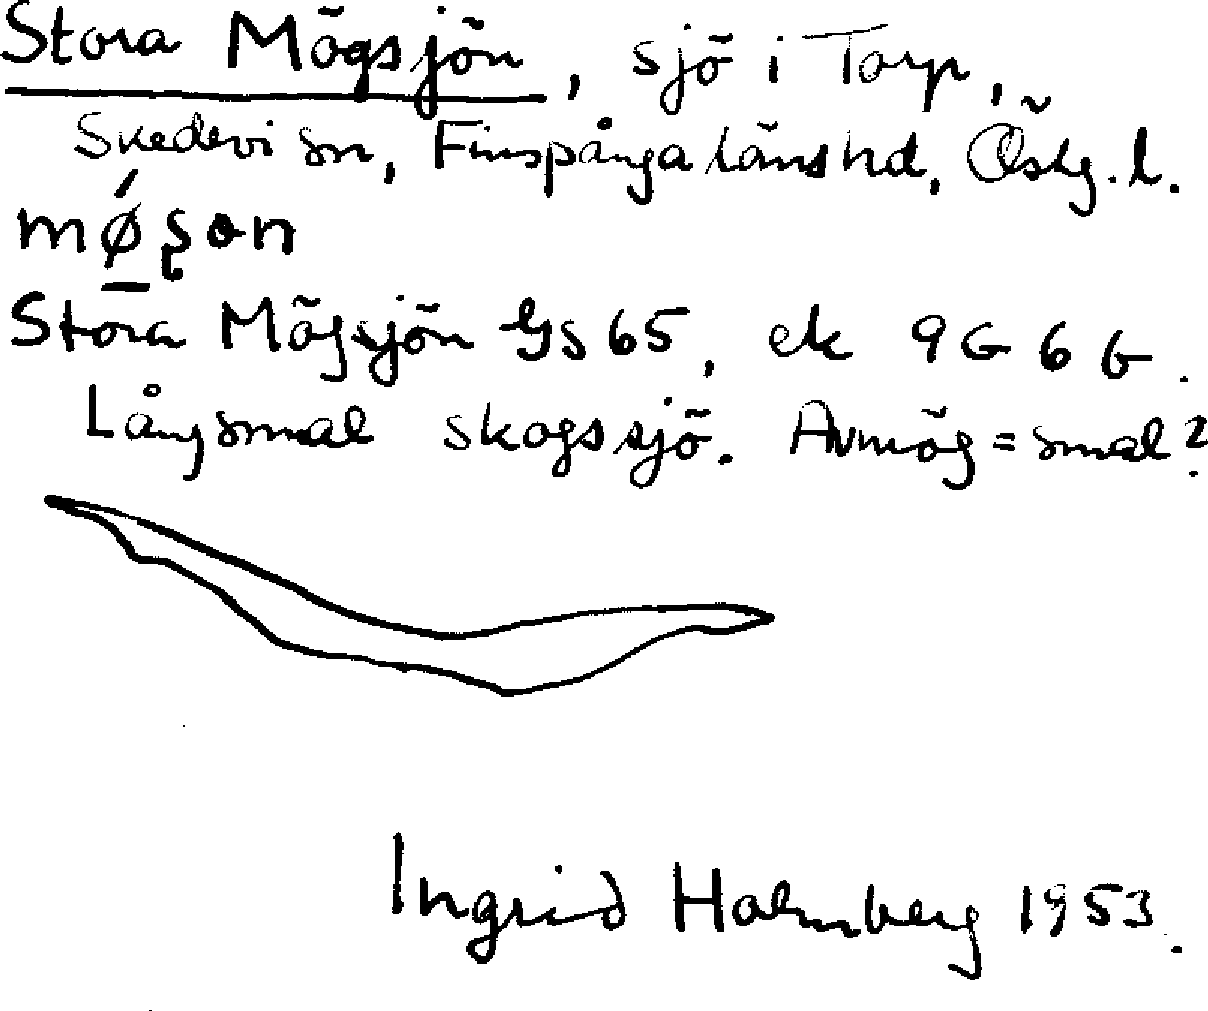 Stora Mögsjön, sjö i Torp,
Skedevi sn, Finspånga läns hd, Östg. l.
Stora Mögsjön GS 65, ek 9G 6b.
Långsmal skogssjö. Avmög = smal?
Ingrid Holmberg 1953.